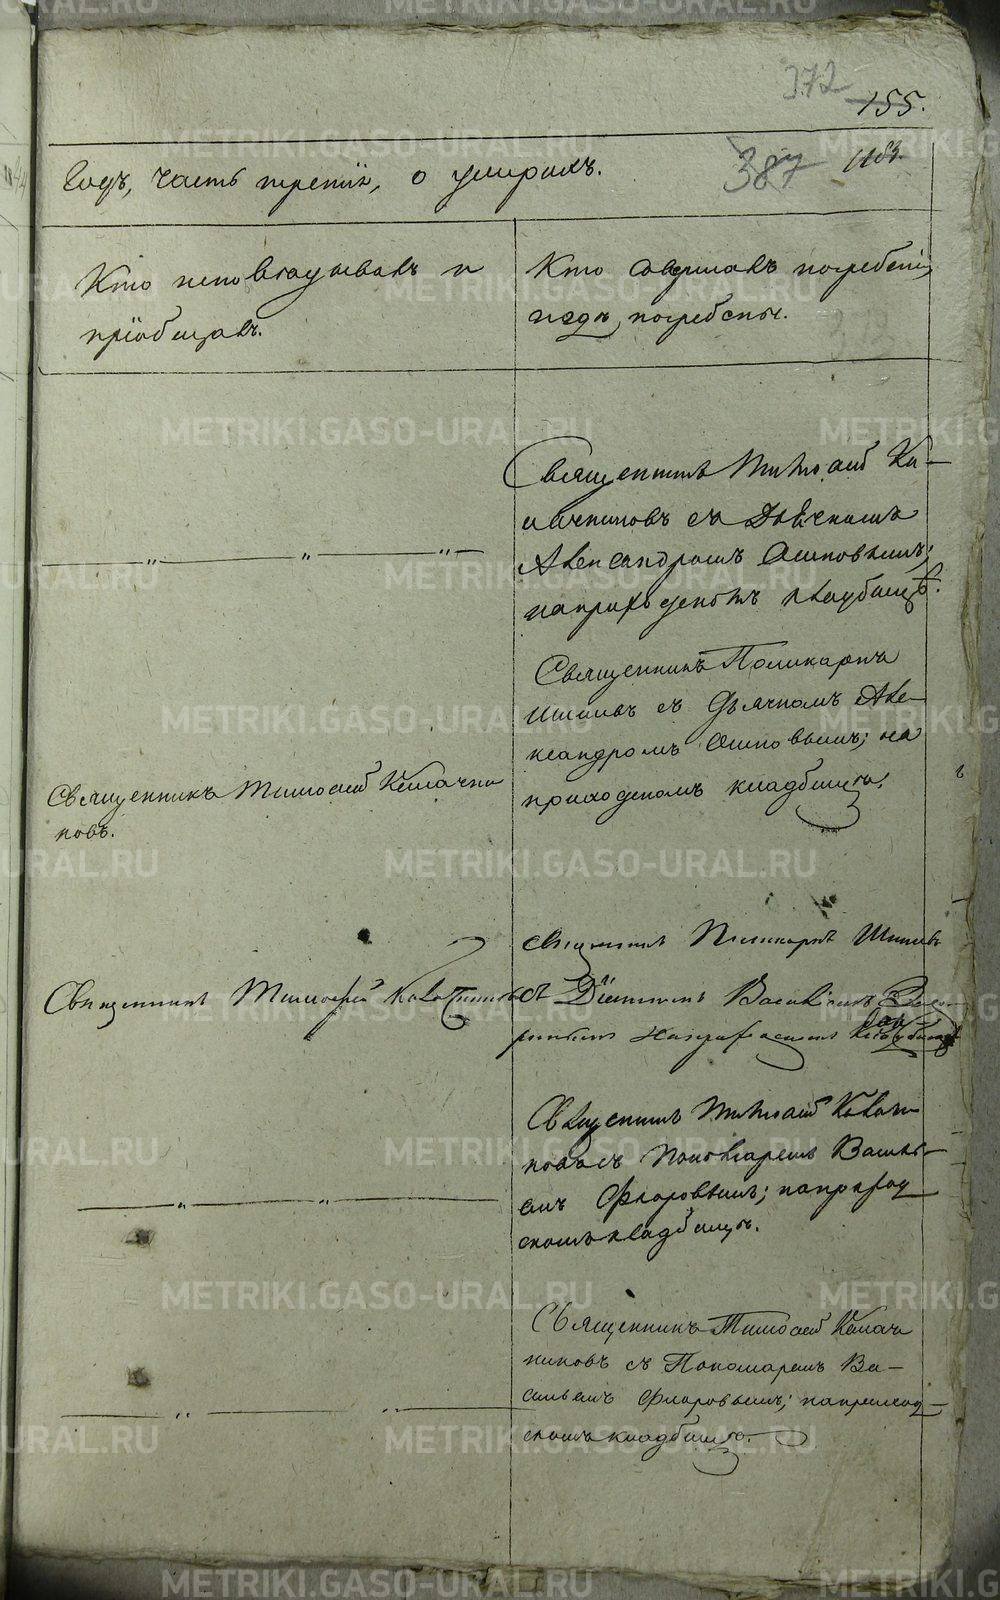 372
155.
387
1183.
Годъ, часть третія, о умершихъ.
Кто исповѣдывалъ и
пріобщалъ.
Кто совершалъ погребеніе,
и гдѣ погребены.
Священникъ Тимоѳей Ка-
лачниковъ съ Дьячкомъ
Александромъ Осиповымъ;
на приходскомъ кладбищѣ.
Священникъ Поликарпъ
Шишовъ съ Дьячкомъ Але-
ксандромъ Осиповымъ; на
приходскомъ кладбищѣ.
Священникъ Тимоѳей Калачни
ковъ.
Священникъ Поликарпъ Шишовъ
Священникъ Тимоѳей Калачниковъ
съ Діакономъ Василіемъ
кладбищѣ
Священникъ Тимоѳей Калачни
ковъ съ Пономаремъ Василь-
емъ Флоровымъ; на приход
скомъ кладбищѣ.
Священникъ Тимоѳей Калач
никовъ съ Пономаремъ Ва-
сильемъ Флоровымъ; на приход-
скомъ кладбищѣ.
METRIKI.GASO-URAL.RU